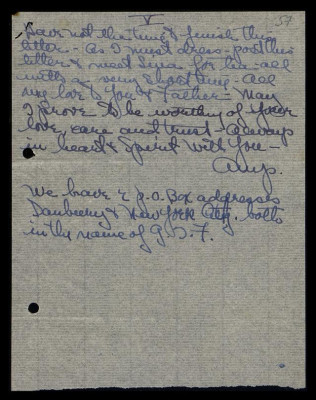 V
57
Have not the time to finish this
letter - as I must dress - post this
letter & meet for tea - all
with a very short time - all
my love to you & Father - May
I prove to be worthy of your
love, care and trust - always
in heart & Spirit with you -
Amy.
We have 2 P.O. Box addresses
Danbury & New York City. both
in the name of G. D. F.